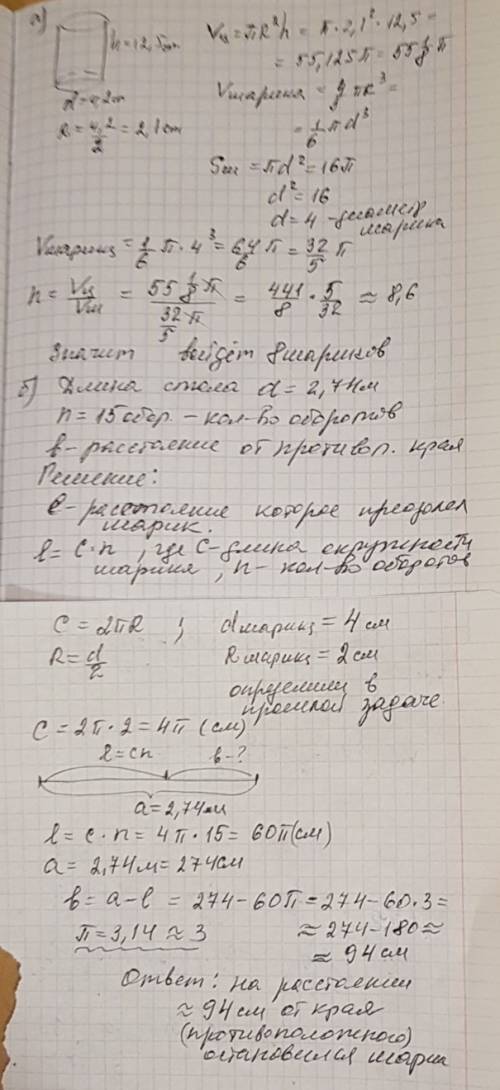 а)
h=12,5см
d=4,2см
R=4,2/2=2,1см
Vц=πR²h = π·2,1²·12,5=
= 55,125π = 55 1/8 π
Vшарика = πR³=
= 1/6 πd³
Sш = πd²=16π
d²=16
d=4 - диаметр шарика
Vшарик = 1/6 π·4³=64/6 π=32/5 π
n= Vц/Vш = 55 1/8 π / 32/5 π = 441/8 · 5/32 ≈ 8,6
Значит войдёт 8 шариков
б) Длина стола d=2,74м
n=15обор. - кол-во оборотов
b- расстояние от противоп. края
Решение:
l- расстояние которое преодолел
шарик.
l= C·n, где C- длина окружности
шарика, n- кол-во оборотов
C=2πR ; dшарик=4см
R=d/2 Rшарик=2см
определили в
прошлой задаче
C=2π·2=4π (см)
l=Cn b-?
a=2,74м
l=c·n=4π·15=60π(см)
a= 2,74м=274см
b=a-l =274-60π=274-60·3=
π=3,14≈3 ≈274-180≈
≈ 94см
Ответ: на расстоянии
≈94см от края
(противоположного)
остановился шарик